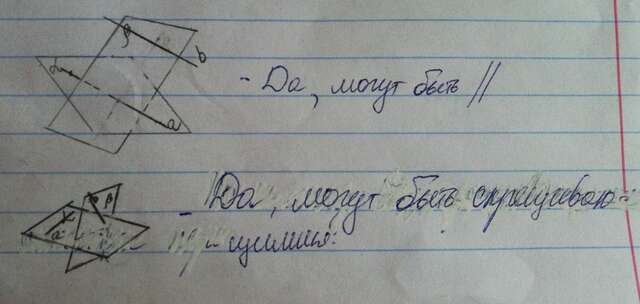 β
b
α
a
- Да, могут быть //
β
a
- Да, могут быть скрещиваю-
щимися.